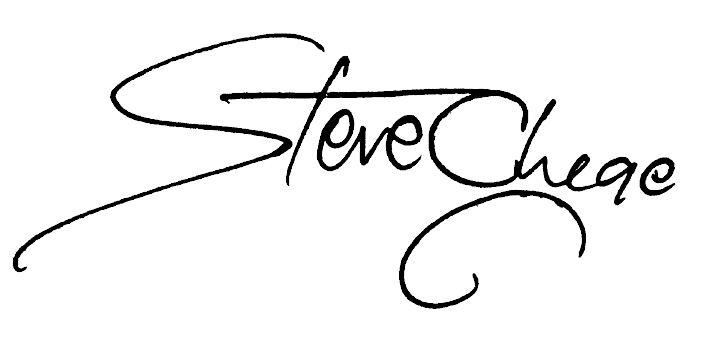 Steve Chege